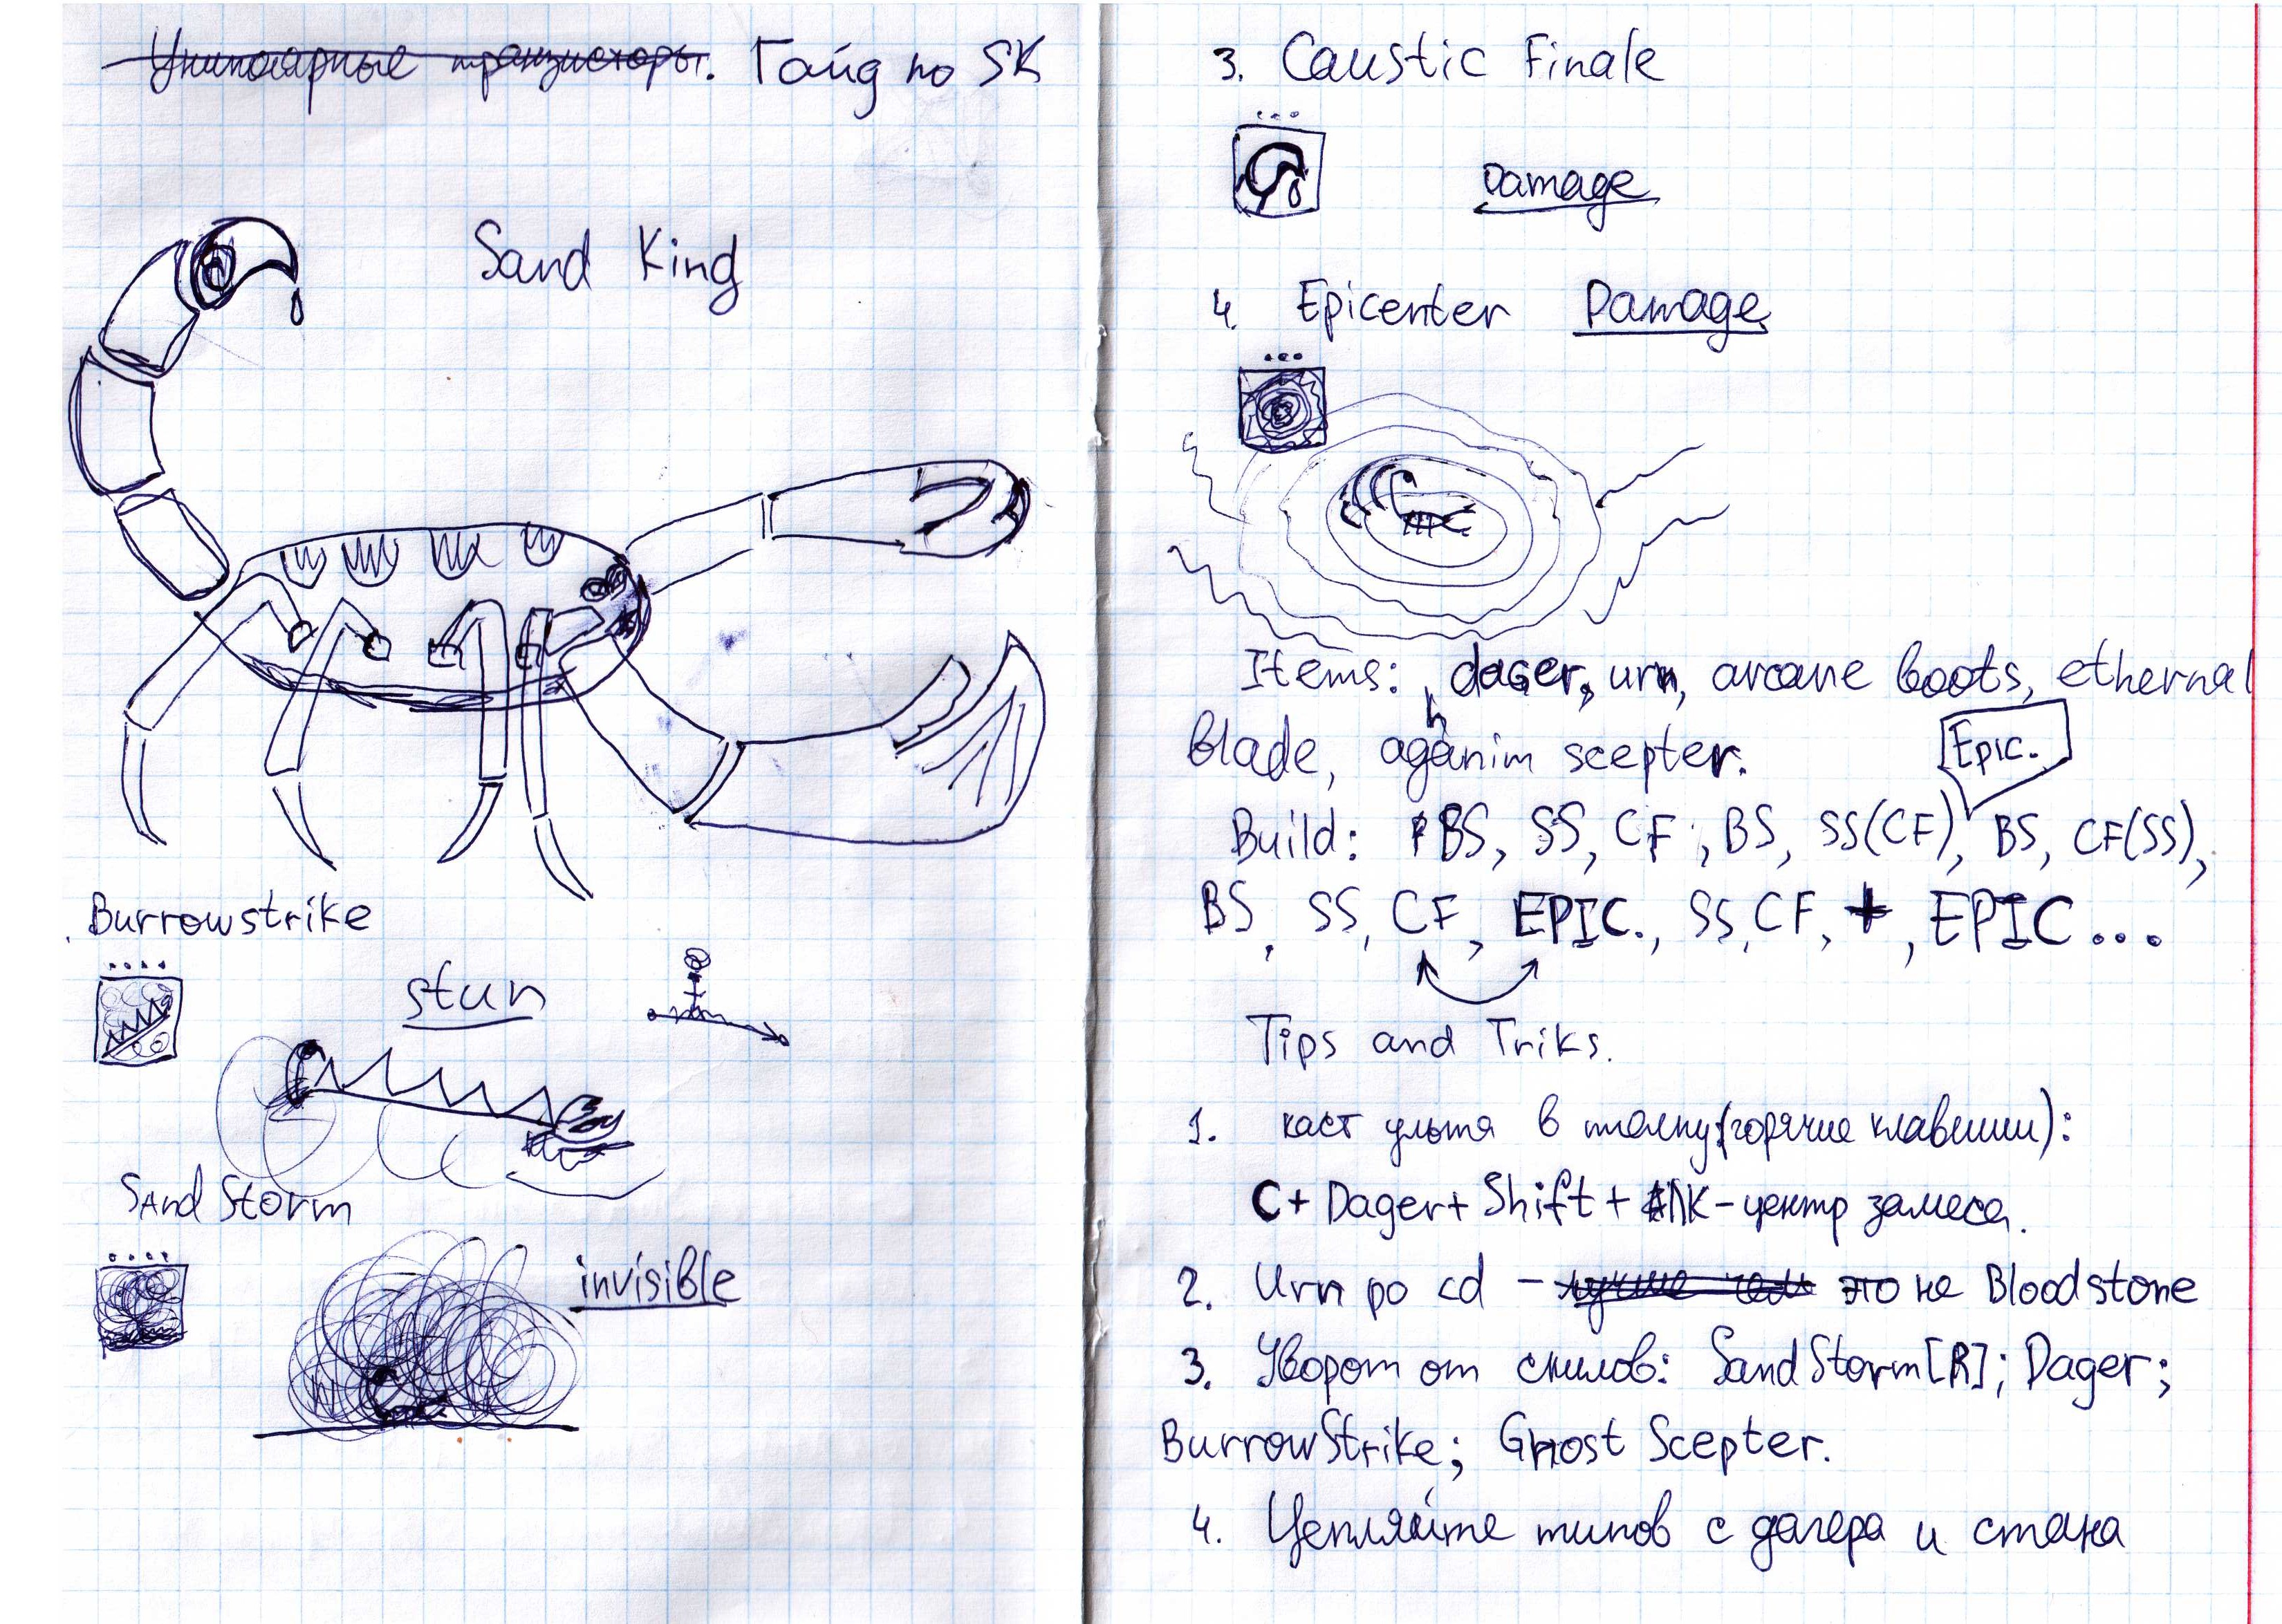 Униполярные транзисторы. Гайд по SK
Sand King
Burrowstrike
stun
SAnd Storm
invisible
3. Caustic Finale
Damage
4. Epicenter Damage
Items: dager, urn, arcane boots, ethernal
blade, aghanim scepter.
Epic.
Build: BS, SS, CF, BS, SS(CF), BS, CF(SS),
BS, SS, CF, EPIC., SS, CF, +, EPIC...
Tips and Triks.
1. каст ульта в толпу(горячие клавиши):
C+ Dager+ Shift + ЛК - центр замеса.
2. Urn po cd - лучше чем это не Bloodstone
3. Уворот от скилов: SandStorm[R]; Dager;
BurrowStrike; Ghost Scepter.
4. Цепляйте типов с дагера и стана